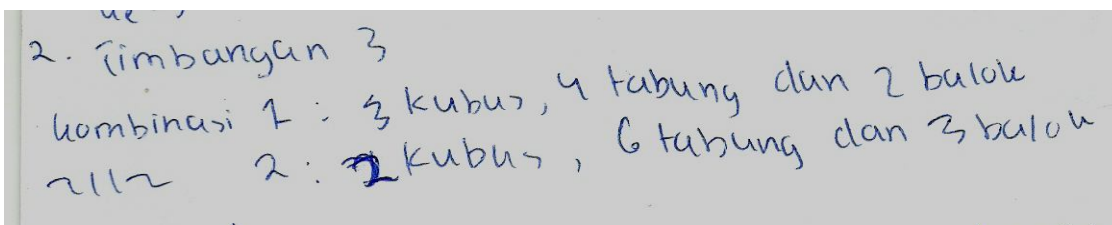 2. Timbangan 3
kombinasi 1 : 3 kubus, 4 tabung dan 2 balok
~11~ 2 : 2 kubus, 6 tabung dan 3 balok